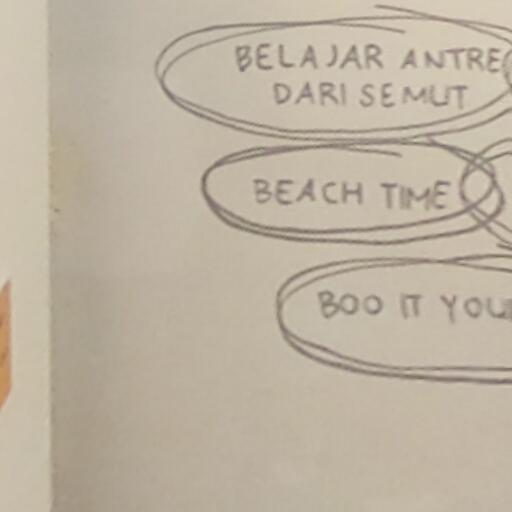 BELAJAR ANTRE
DARI SEMUT
BEACH TIME
BOO IT